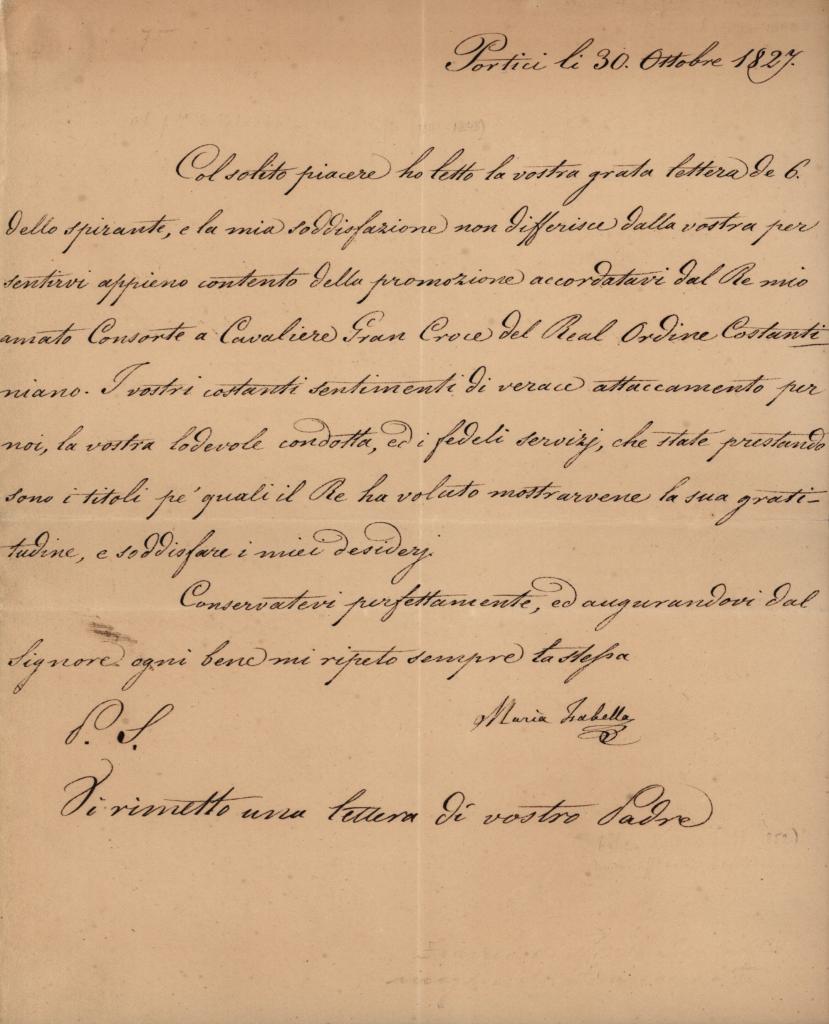 Portici li 30. Ottobre 1827.
Col solito piacere ho letto la vostra grata lettera de 6.
dello spirante, e la mia soddisfazione non differisce dalla vostra per
sentirvi appieno contento della promozione accordatavi dal Re mio
amato Consorte a Cavaliere Gran Croce del Real Ordine Costanti
niano. I vostri costanti sentimenti di verace attaccamento per
noi, la vostra lodevole condotta, ed i fedeli servizj, che state prestando
sono i titoli pe' quali il Re ha voluto mostrarvene la sua grati-
tudine, e soddisfare i miei desiderj.
Conservatevi perfettamente, ed augurandovi dal
Signore ogni bene mi ripeto sempre la stessa
Maria Isabella
P. S.
Vi rimetto una lettera di vostro Padre